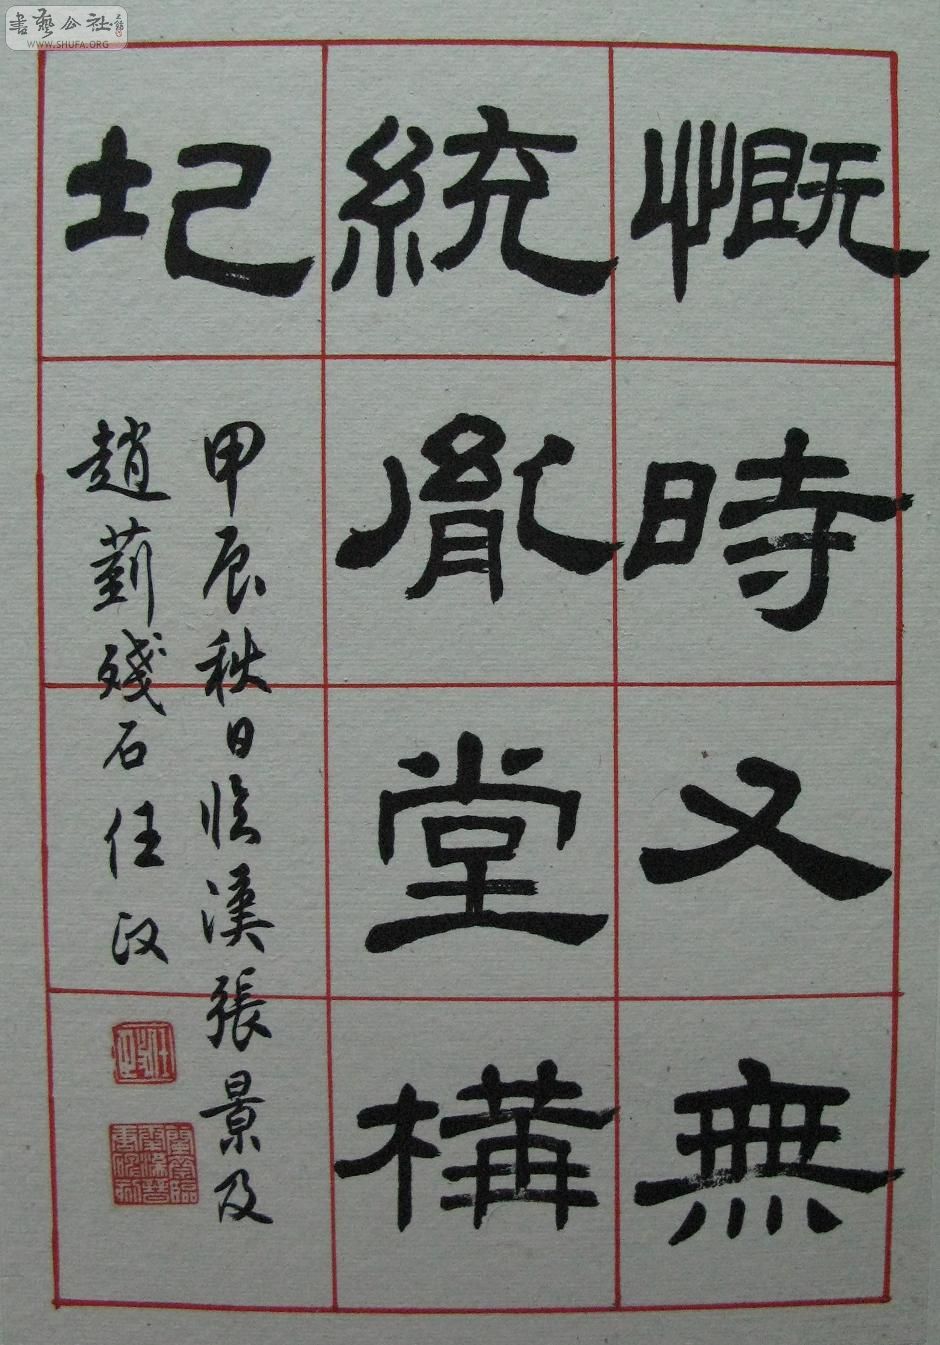 書藝公社
WWW.SHUFA.ORG
慨時又無
統胤堂構
圮
甲辰秋日臨漢張景及
趙菿殘石任汉